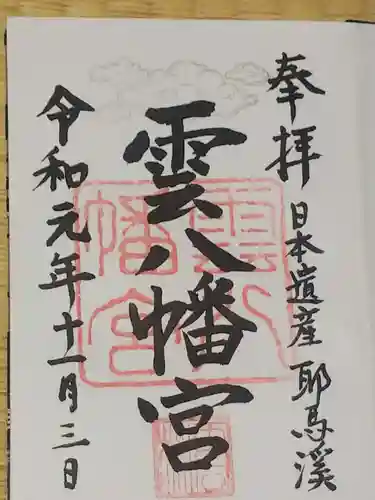 奉拝 日本遺産 耶馬溪
雲八幡宮
令和元年十一月三日
雲八
幡宮